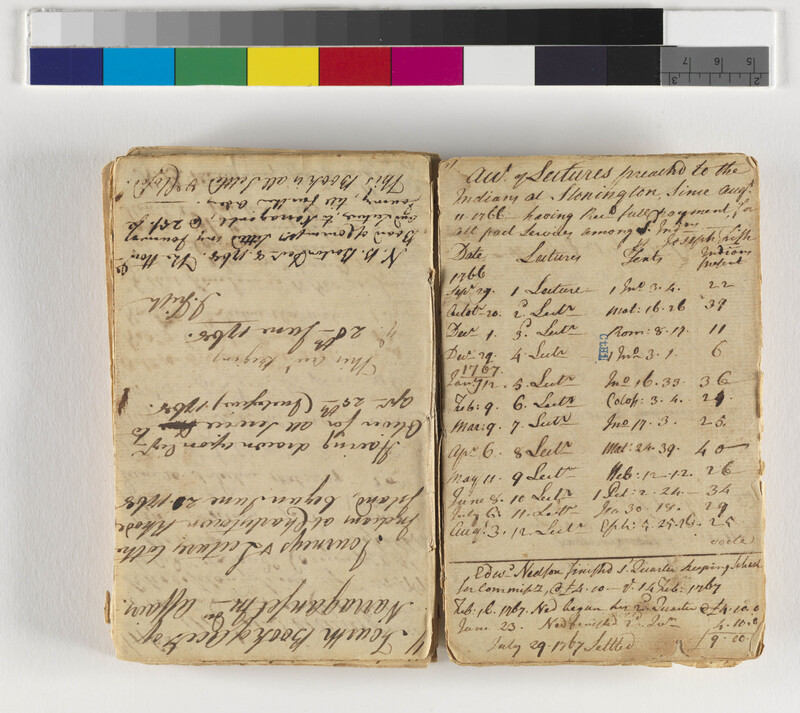 Fourth Book of Acct of
Narraganset In — affair.
Journeys & Lectures to the
Indians at Charlestown Rhode
Island began June 20 1768
Having drawn upon Capt
Oliver for all Service to
apr 25th (Inclusive) 1768.
This Acct begins
28th June 1768.
J Fish
N.B. Boston 8. 1768. The Honle
Board of settled my Journeys
and Lectures, to @ 25/ pr
Journey, till further Orders.
This Book is all Settled & Closed.
Acct of Lectures preachd to the
Indians at Stonington, Since Augt
11 1766 having Recd full payment, for
all past Services among ye Indns
Joseph Fish
Date Lectures Texts Indians present
1766
Sepr 29. 1 Lecture 1 Jno 3. 4. 22
Octobr 20. 2d Lectr Mat: 16. 26 39
Decr 1. 3d Lectr Rom: 8. 17. 11
Decr 29. 4 Lectr 1 Jno 3. 1. 6
1767
Janry 12. 5. Lectr Jno 16. 33. 36
Feb: 9. 6. Lectr Colos: 3. 4. 24
Mar: 9. 7. Lectr Jno 17. 3. 25
Apr 6. 8 Lectr Mat: 24. 39. 40
May 11. 9 Lectr Heb: 12-12. 26
June 8. 10 Lectr 1 Pet: 2. 24 — 34
July 6. 11. Lectr Jno 30. 18. 29
Augt 3. 12. Lectr Eph: 5. 25-26. 25
Edwd Nedson finished 1st Quarter keeping School
for Commissrs, @ £4.10 — 14 Feb: 1767
Feb: 16. 1767. Ned began his 2d Quarter @ £4.10.0
June 23. Ned finished 2d Qur 4.10.0
9.00
July 29. 1767 Settled